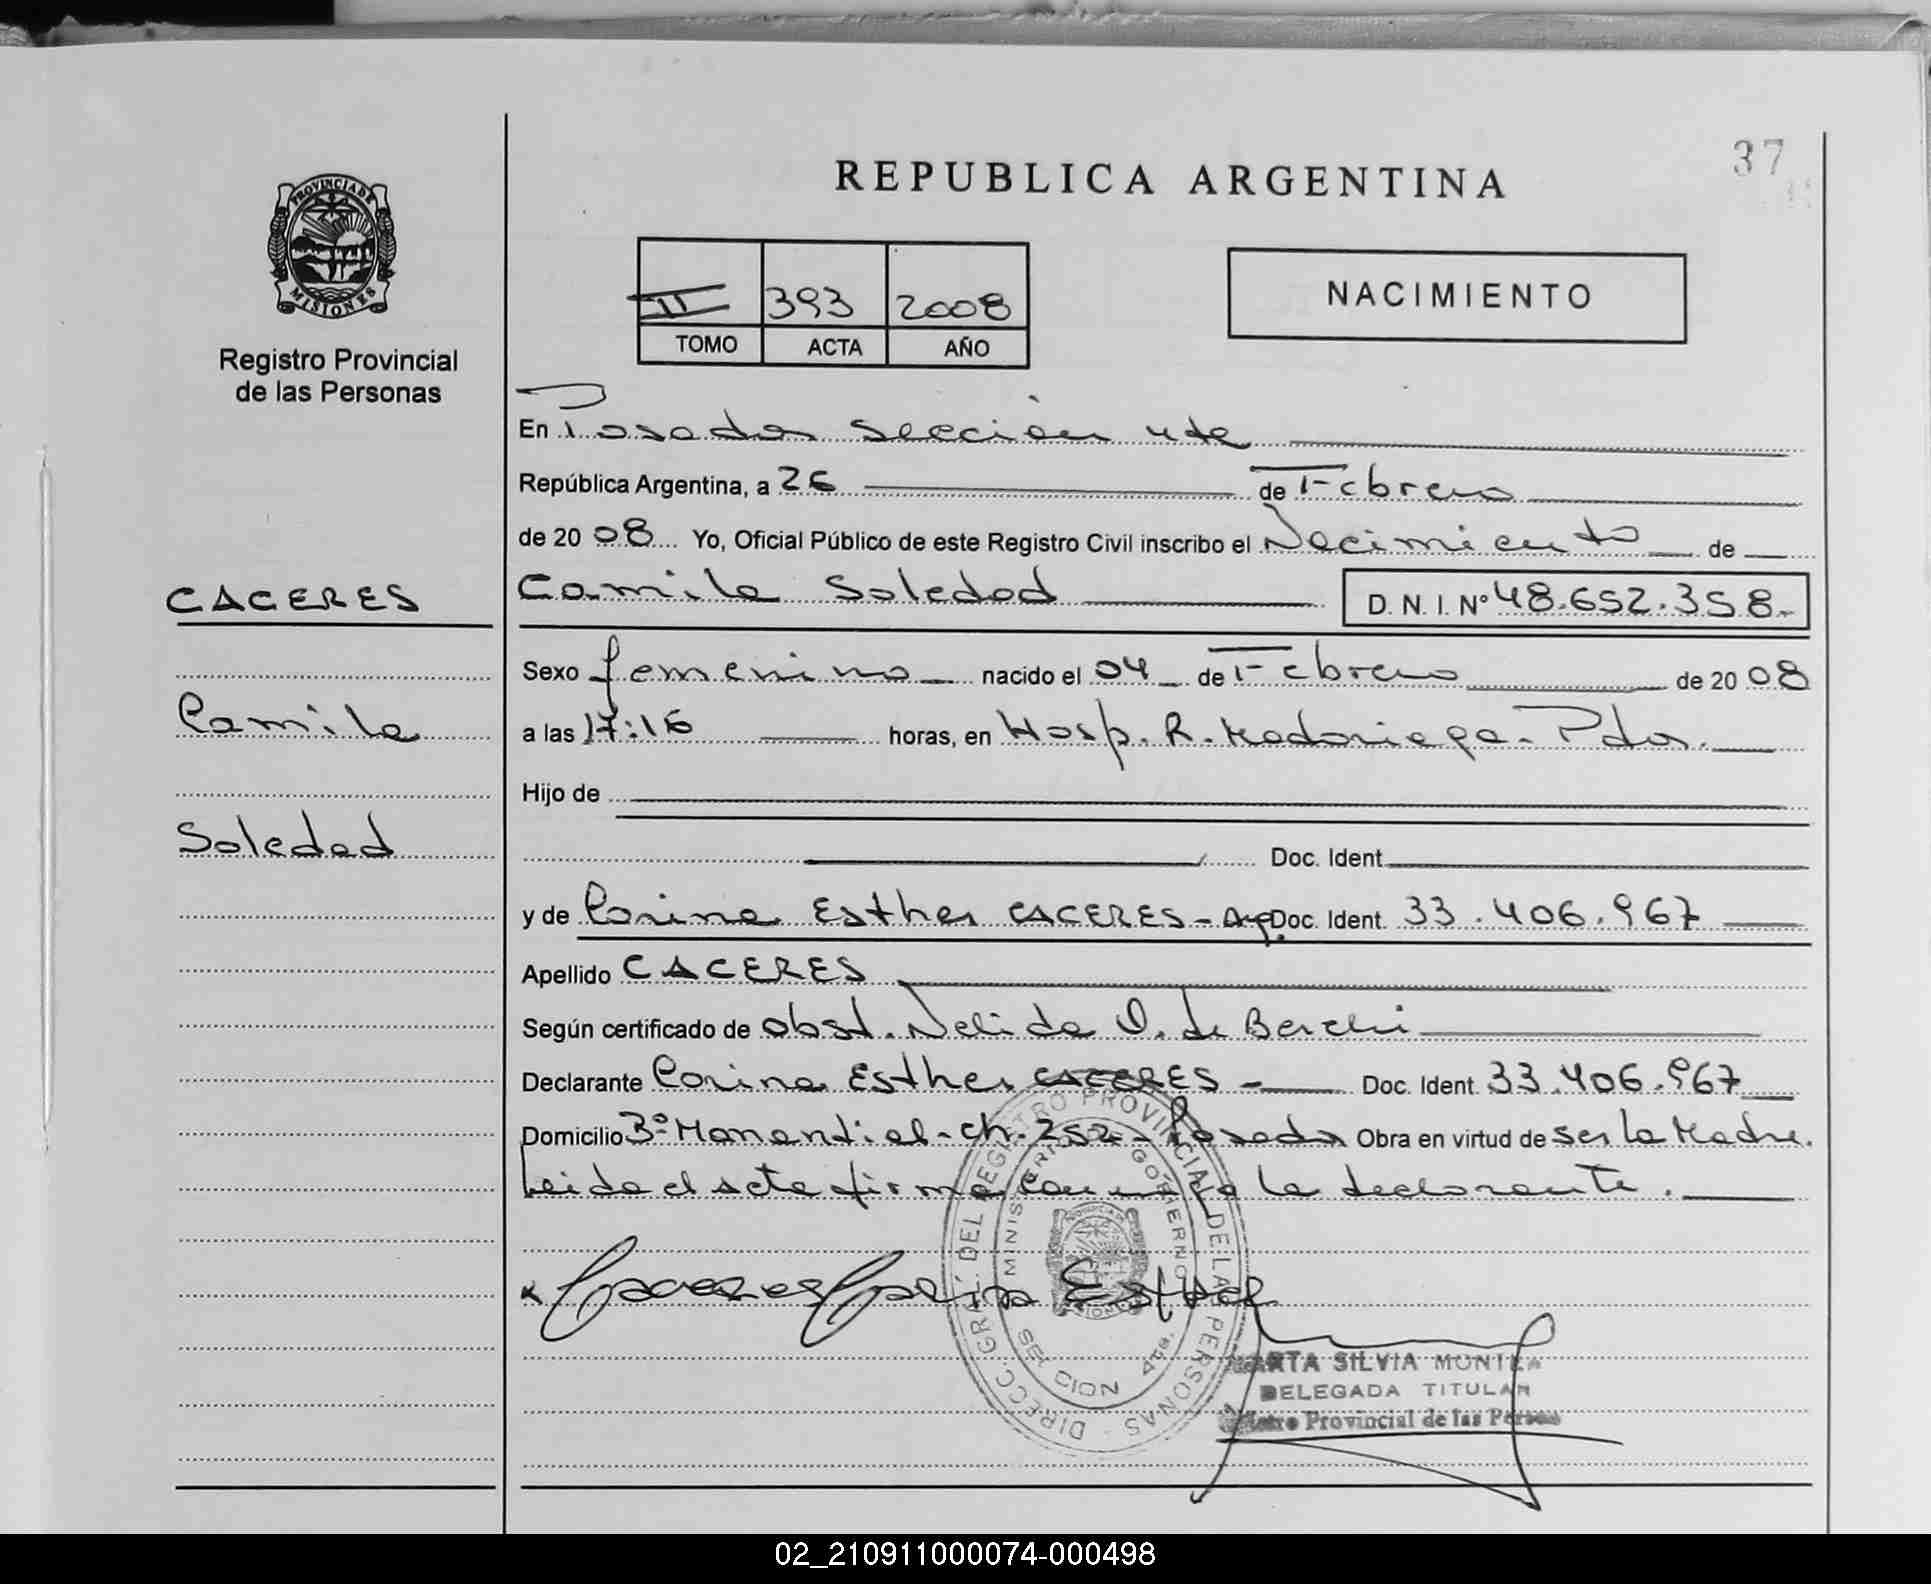 37
REPUBLICA ARGENTINA
PROVINCIA DE
MISIONES
Registro Provincial
de las Personas
II 393 2008
TOMO ACTA AÑO
NACIMIENTO
En Posadas Sección 4ta
República Argentina, a 26 de Febrero
de 20 08 Yo, Oficial Público de este Registro Civil inscribo el Nacimiento de
CACERES
Camila Soledad D. N. I. Nº 48.652.358.-
Sexo femenino nacido el 04 de Febrero de 20 08
Camila
a las 17:16 horas, en Hosp. R. Madariaga - Pdas.
Hijo de
Soledad
Doc. Ident.
y de Corina Esther CACERES - Arg. Doc. Ident. 33.406.967
Apellido CACERES
Según certificado de obst. Nelida O. de Berchi
Declarante Corina Esther CACERES - Doc. Ident. 33.406.967
Domicilio 3º Manantial - ch. 252 - Posadas Obra en virtud de ser la Madre.
Leida el acta firma conmigo la declarante.
DIRECC. GRAL. DEL REGISTRO PROVINCIAL DE LAS PERSONAS
MINISTERIO GOBIERNO
SECCION 4ta.
x Caceres Corina Esther
MARTA SILVIA
DELEGADA TITULAR
Provincial de las
02_210911000074-000498